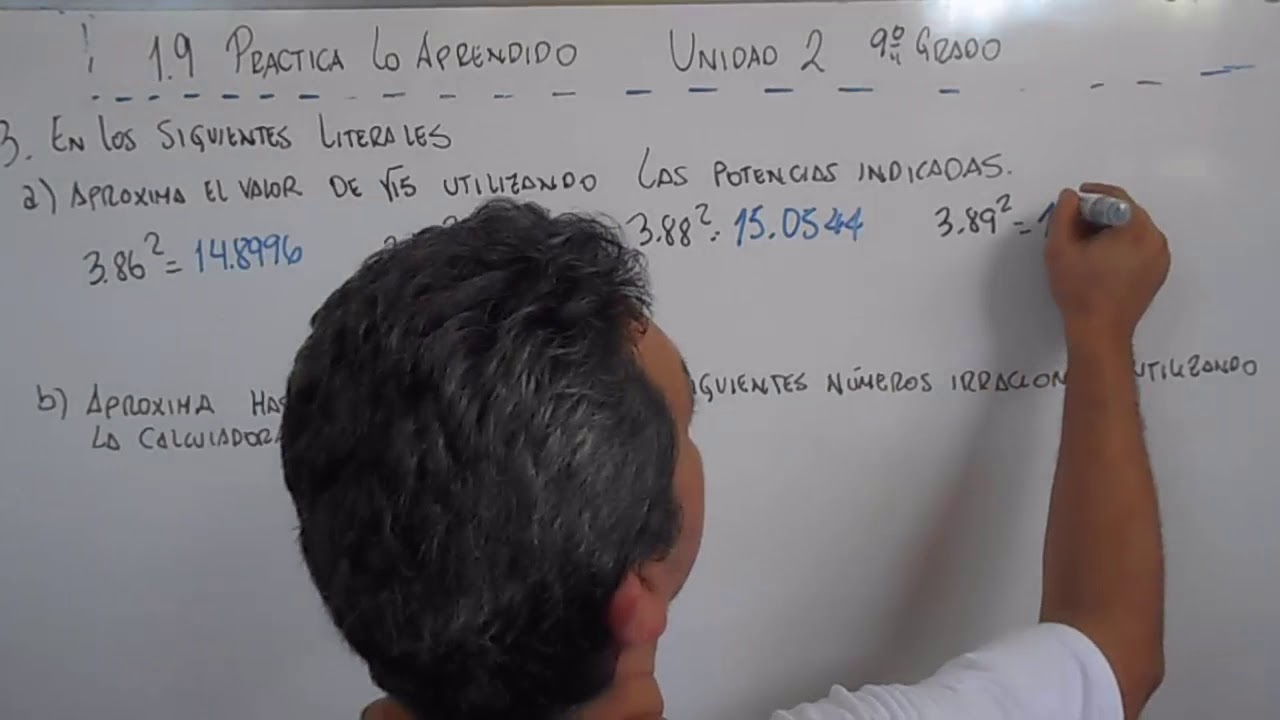 1.9 PRACTICA LO APRENDIDO UNIDAD 2 9º GRADO
3. EN LOS SIGUIENTES LITERALES
a) APROXIMA EL VALOR DE √15 UTILIZANDO LAS POTENCIAS INDICADAS.
3.86² = 14.8996 3.88² = 15.0544 3.89² = 1
b) APROXIMA NÚMEROS
LA CALCULADORA